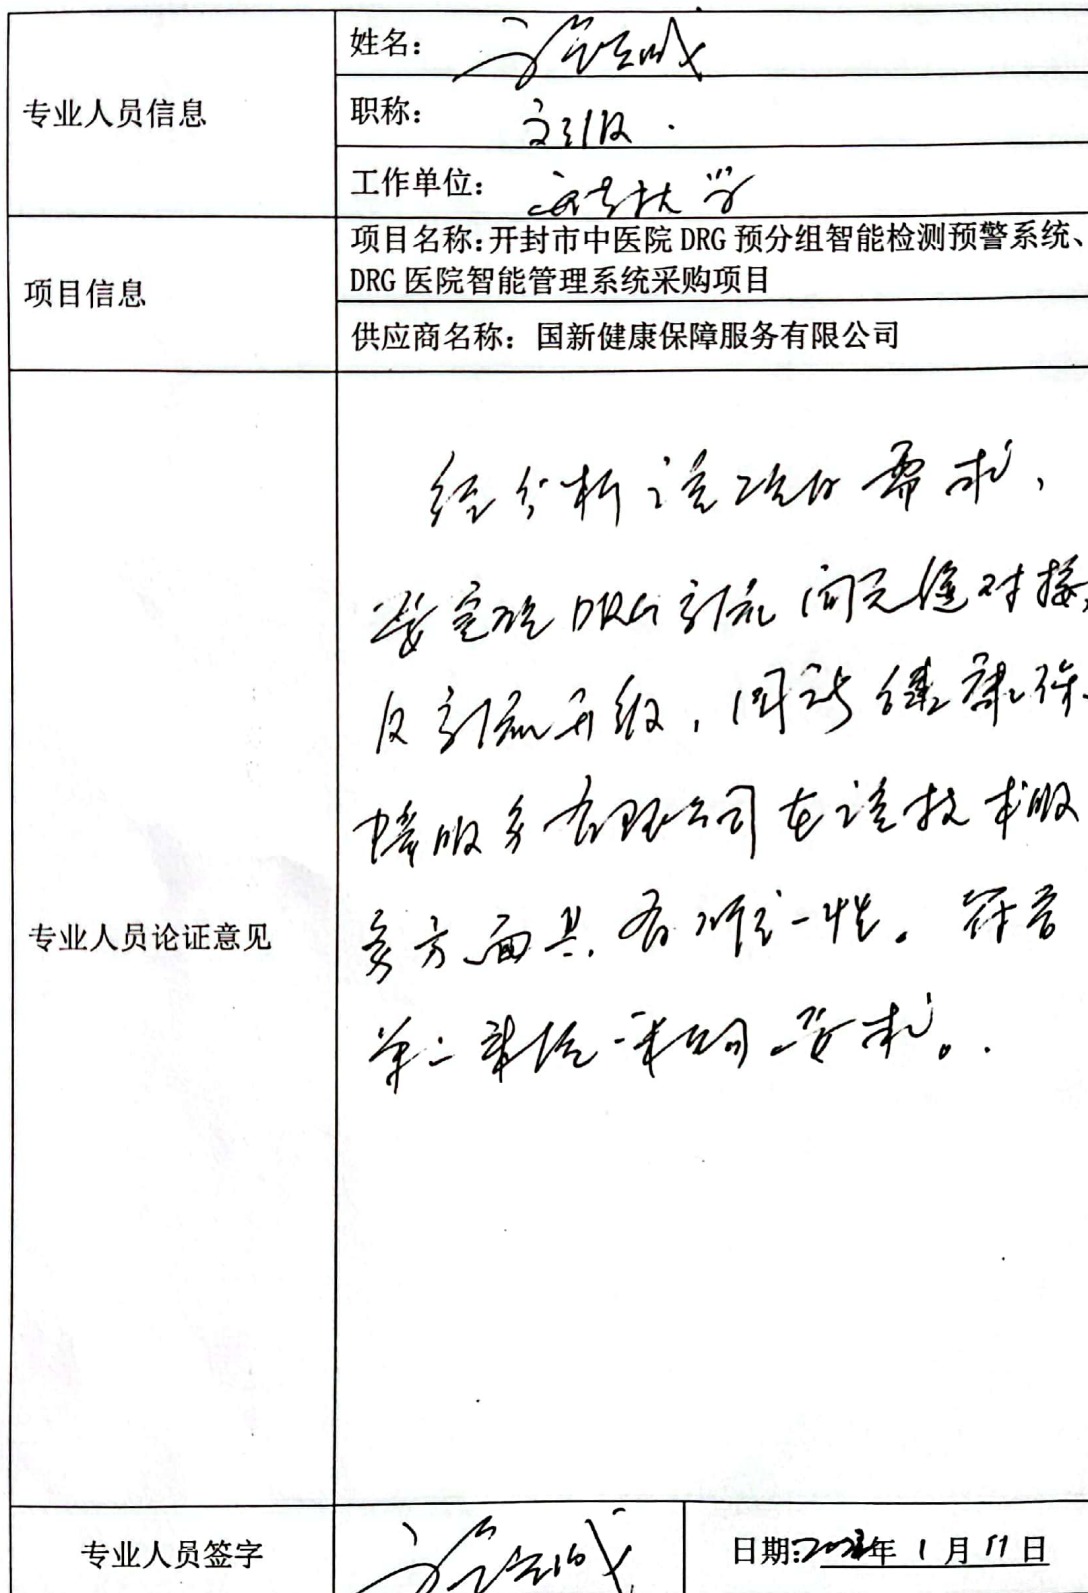 专业人员信息
姓名：
职称：
工作单位：
项目信息
项目名称：开封市中医院 DRG 预分组智能检测预警系统、
DRG 医院智能管理系统采购项目
供应商名称：国新健康保障服务有限公司
专业人员论证意见
经分析该项目需求，
要实现DRG系统间无缝对接，
及系统升级，国新健康保
障服务有限公司在该技术服
务方面具有唯一性。符合
单一来源 要求。
专业人员签字
日期: 年 1 月 11 日